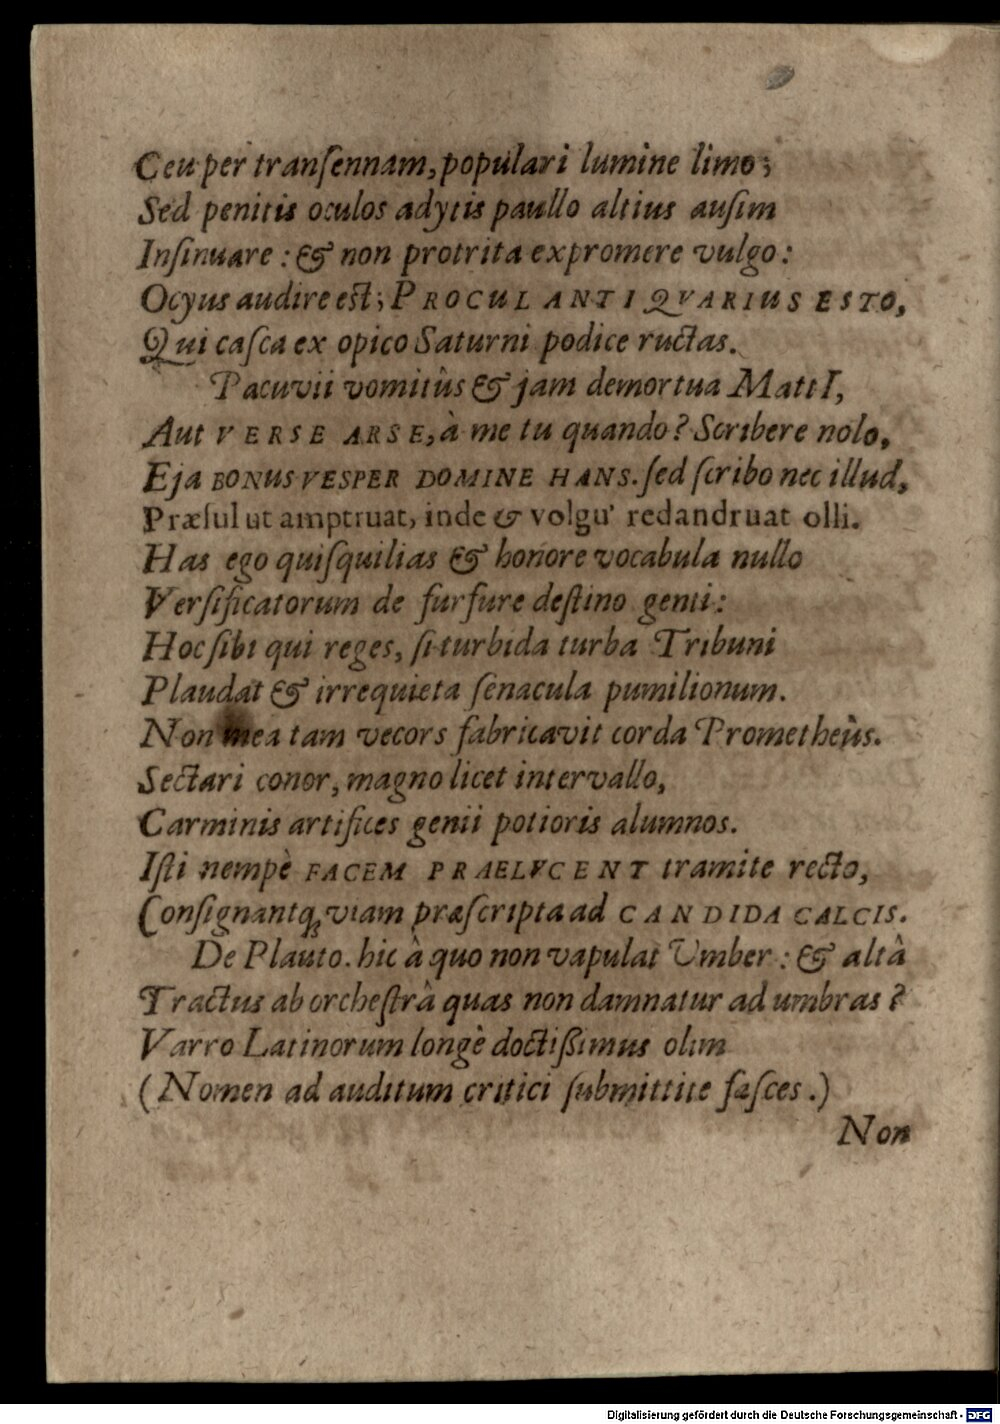 Ceu per tranſennam, populari lumine limo;
Sed penitis oculos adytis paullo altius auſim
Inſinuare: & non protrita expromere vulgo:
Ocyus audire est; PROCUL ANTIQVARIUS ESTO,
Qui caſca ex opico Saturni podice ructas.
Pacuvii vomitûs & jam demortua MattI,
Aut VERSE ARSE, à me tu quando? Scribere nolo,
Eja BONUS VESPER DOMINE HANS. ſed ſcribo nec illud,
Præſul ut amptruat, inde & volgu' redandruat olli.
Has ego quiſquilias & honore vocabula nullo
Verſificatorum de furfure deſtino genti:
Hoc ſibi qui reges, ſi turbida turba Tribuni
Plaudat & irrequieta ſenacula pumilionum.
Non mea tam vecors fabricavit corda Prometheûs.
Sectari conor, magno licet intervallo,
Carminis artifices genii potioris alumnos.
Iſti nempè FACEM PRAELVCENT tramite recto,
Conſignantq; viam præſcripta ad CANDIDA CALCIS.
De Plauto. hic à quo non vapulat Umber: & altâ
Tractus ab orcheſtrâ quas non damnatur ad umbras?
Varro Latinorum longè doctiſſimus olim
(Nomen ad auditum critici ſubmittite faſces.)
Non
Digitalisierung gefördert durch die Deutsche Forschungsgemeinschaft - DFG